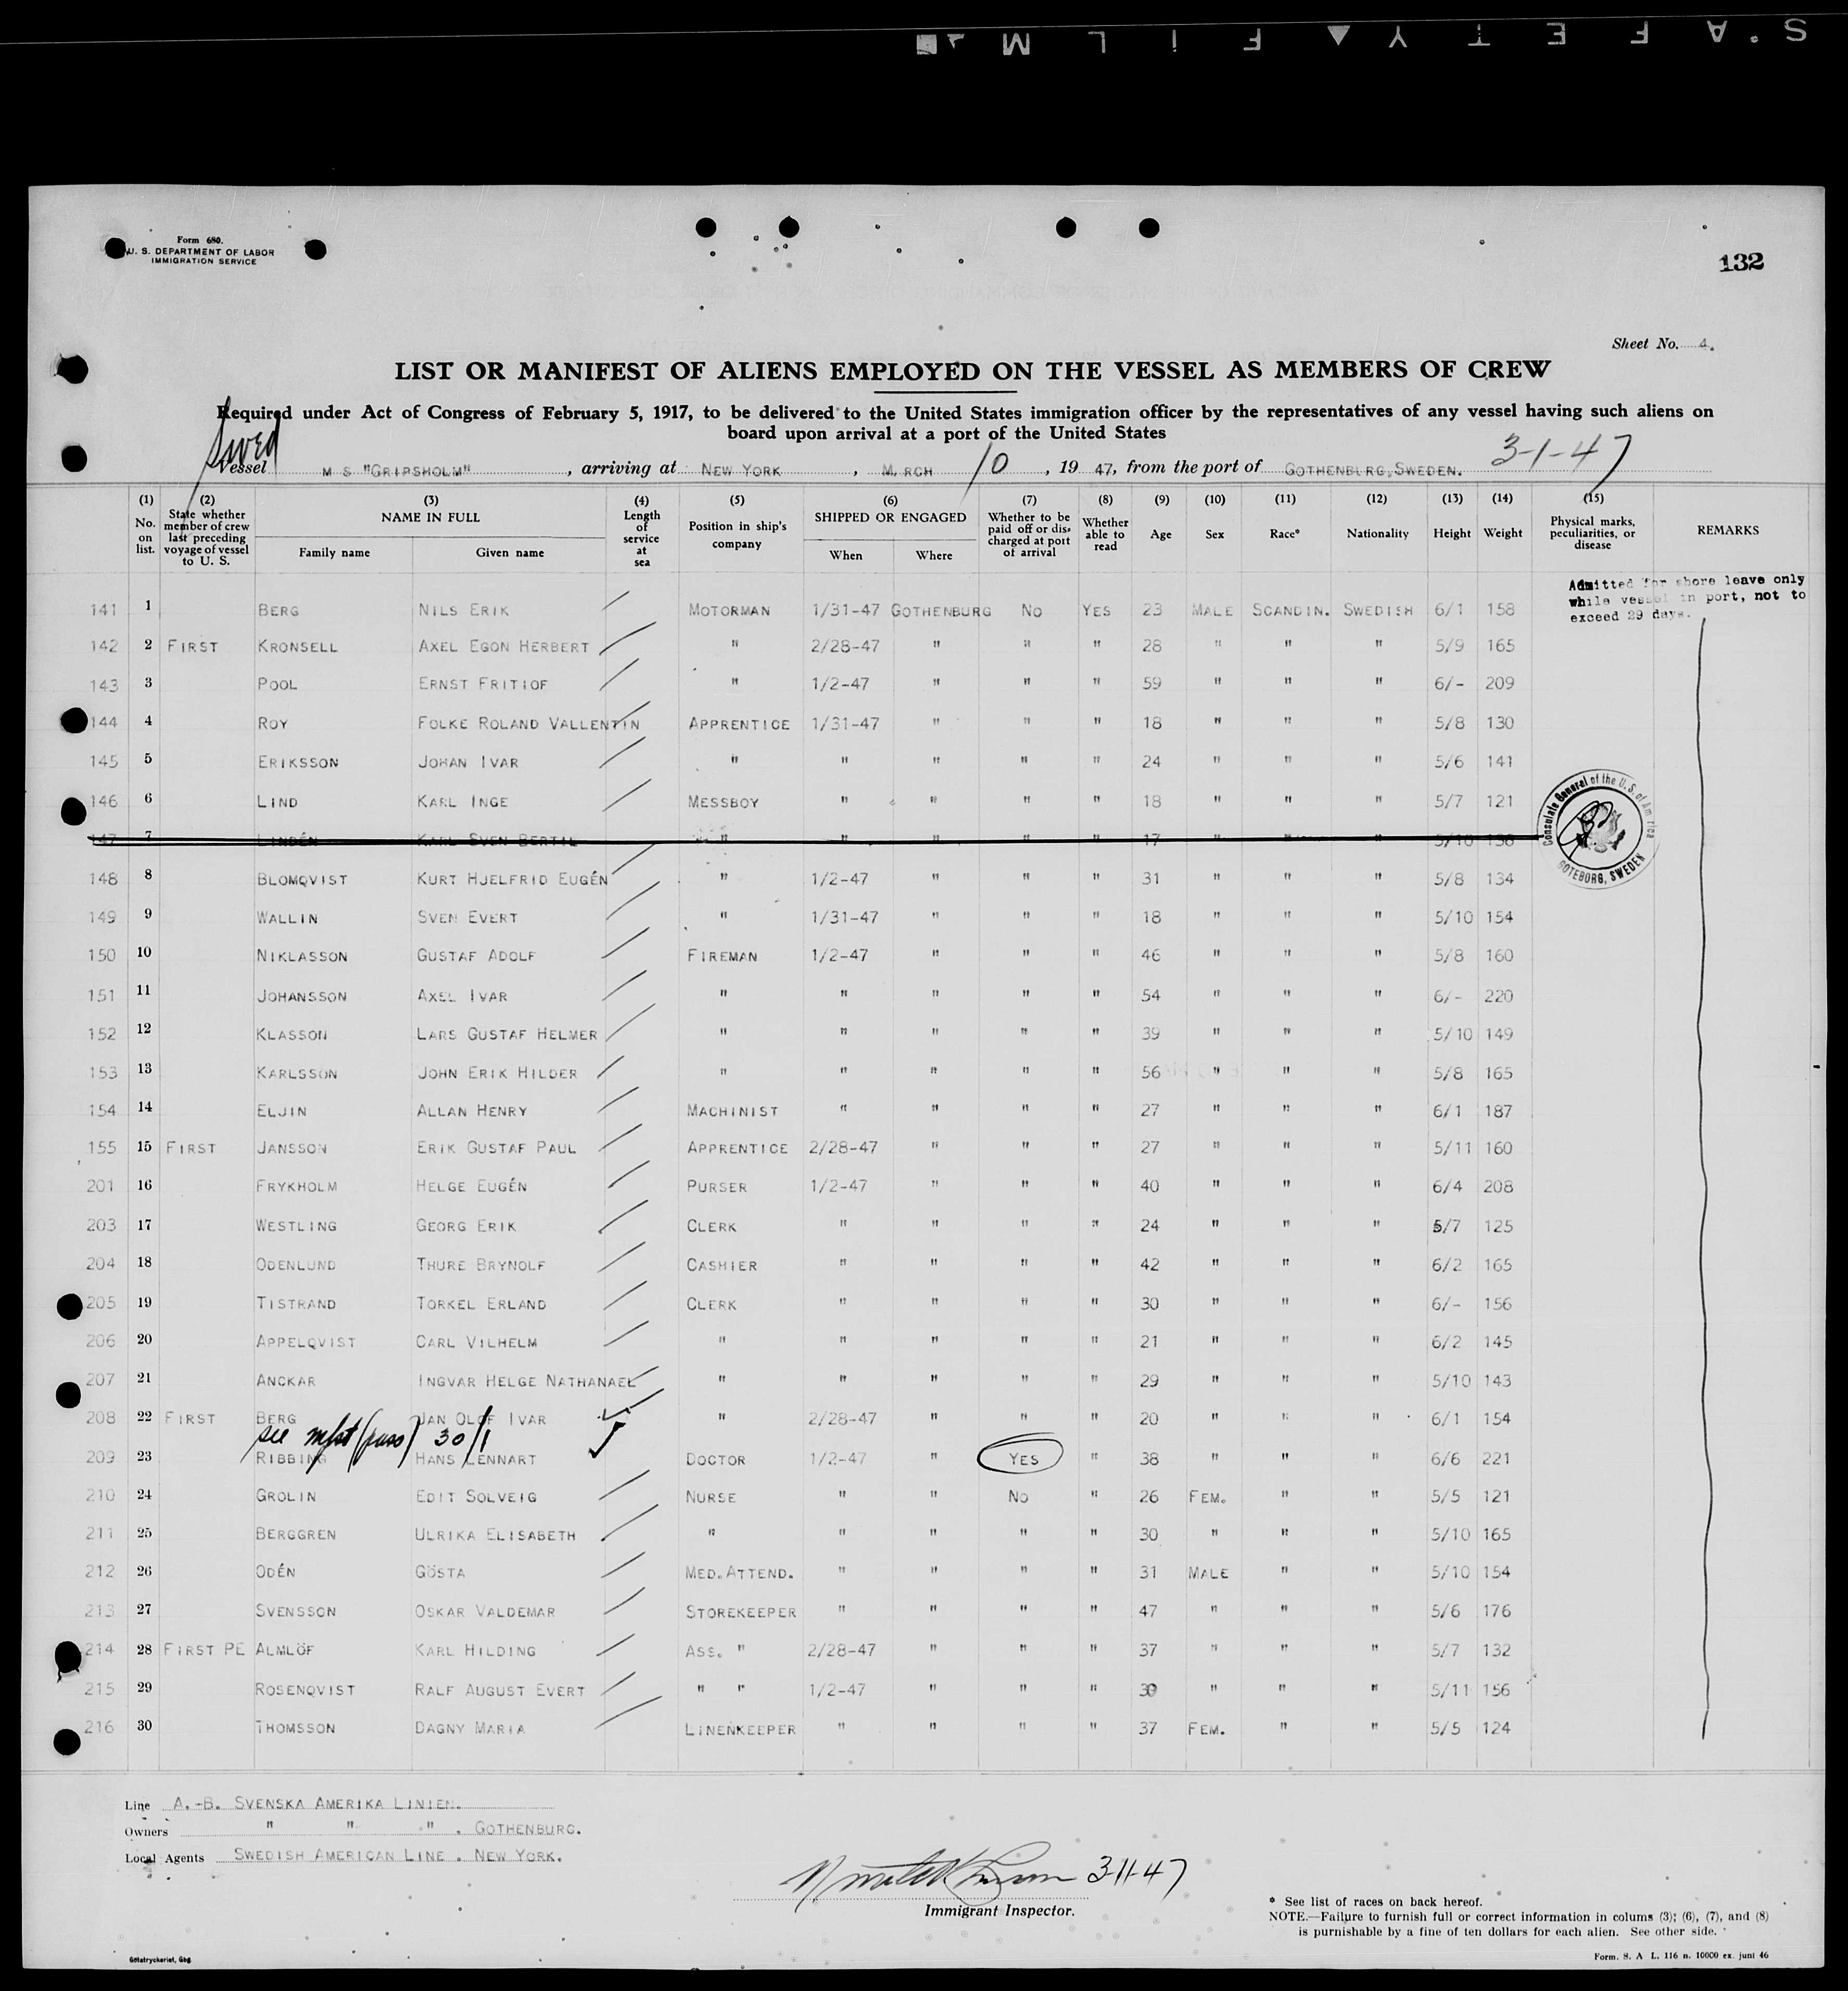 S.AFETY▲FILM
Form 680.
U. S. DEPARTMENT OF LABOR
IMMIGRATION SERVICE
132
Sheet No. 4.
LIST OR MANIFEST OF ALIENS EMPLOYED ON THE VESSEL AS MEMBERS OF CREW
Required under Act of Congress of February 5, 1917, to be delivered to the United States immigration officer by the representatives of any vessel having such aliens on
board upon arrival at a port of the United States
Swed
Vessel M S "GRIPSHOLM", arriving at NEW YORK, M RCH 10, 19 47, from the port of GOTHENBURG, SWEDEN. 3-1-47
(1) No. on list. (2) State whether member of crew last preceding voyage of vessel to U. S. (3) NAME IN FULL Family name Given name (4) Length of service at sea (5) Position in ship's company (6) SHIPPED OR ENGAGED When Where (7) Whether to be paid off or discharged at port of arrival (8) Whether able to read (9) Age (10) Sex (11) Race* (12) Nationality (13) Height (14) Weight (15) Physical marks, peculiarities, or disease REMARKS
Admitted for shore leave only
while vessel in port, not to
exceed 29 days.
141 1 BERG NILS ERIK MOTORMAN 1/31-47 GOTHENBURG NO YES 23 MALE SCANDIN. SWEDISH 6/1 158
142 2 FIRST KRONSELL AXEL EGON HERBERT " 2/28-47 " " " 28 " " " 5/9 165
143 3 POOL ERNST FRITIOF " 1/2-47 " " " 59 " " " 6/- 209
144 4 ROY FOLKE ROLAND VALLENTIN APPRENTICE 1/31-47 " " " 18 " " " 5/8 130
145 5 ERIKSSON JOHAN IVAR " " " " " 24 " " " 5/6 141
146 6 LIND KARL INGE MESSBOY " " " " 18 " " " 5/7 121
147 7 LINDÉN KARL SVEN BERTIL " " " " " 17 " " " 5/10 138
Consulate General of the U.S. of America
GOTEBORG, SWEDEN
148 8 BLOMQVIST KURT HJELFRID EUGÉN " 1/2-47 " " " 31 " " " 5/8 134
149 9 WALLIN SVEN EVERT " 1/31-47 " " " 18 " " " 5/10 154
150 10 NIKLASSON GUSTAF ADOLF FIREMAN 1/2-47 " " " 46 " " " 5/8 160
151 11 JOHANSSON AXEL IVAR " " " " " 54 " " " 6/- 220
152 12 KLASSON LARS GUSTAF HELMER " " " " " 39 " " " 5/10 149
153 13 KARLSSON JOHN ERIK HILDER " " " " " 56 " " " 5/8 165
154 14 ELJIN ALLAN HENRY MACHINIST " " " " 27 " " " 6/1 187
155 15 FIRST JANSSON ERIK GUSTAF PAUL APPRENTICE 2/28-47 " " " 27 " " " 5/11 160
201 16 FRYKHOLM HELGE EUGÉN PURSER 1/2-47 " " " 40 " " " 6/4 208
203 17 WESTLING GEORG ERIK CLERK " " " " 24 " " " 5/7 125
204 18 ODENLUND THURE BRYNOLF CASHIER " " " " 42 " " " 6/2 165
205 19 TISTRAND TORKEL ERLAND CLERK " " " " 30 " " " 6/- 156
206 20 APPELQVIST CARL VILHELM " " " " " 21 " " " 6/2 145
207 21 ANCKAR INGVAR HELGE NATHANAEL " " " " " 29 " " " 5/10 143
208 22 FIRST BERG JAN OLOF IVAR " 2/28-47 " " " 20 " " " 6/1 154
see mfst (pass) 30/1
209 23 RIBBING HANS LENNART DOCTOR 1/2-47 " YES " 38 " " " 6/6 221
210 24 GROLIN EDIT SOLVEIG NURSE " " NO " 26 FEM. " " 5/5 121
211 25 BERGGREN ULRIKA ELISABETH " " " " " 30 " " " 5/10 165
212 26 ODÉN GÖSTA MED.ATTEND. " " " " 31 MALE " " 5/10 154
213 27 SVENSSON OSKAR VALDEMAR STOREKEEPER " " " " 47 " " " 5/6 176
214 28 FIRST PE ALMLÖF KARL HILDING ASS. " 2/28-47 " " " 37 " " " 5/7 132
215 29 ROSENQVIST RALF AUGUST EVERT " " 1/2-47 " " " 30 " " " 5/11 156
216 30 THOMSSON DAGNY MARIA LINENKEEPER " " " " 37 FEM. " " 5/5 124
Line A.-B. SVENSKA AMERIKA LINIEN.
Owners " " " . GOTHENBURG.
Local Agents SWEDISH AMERICAN LINE . NEW YORK.
3-11-47
Immigrant Inspector.
* See list of races on back hereof.
NOTE.—Failure to furnish full or correct information in colums (3); (6), (7), and (8)
is purnishable by a fine of ten dollars for each alien. See other side.
Götatryckeriet, Gbg
Form. S. A L. 116 n. 10000 ex. juni 46